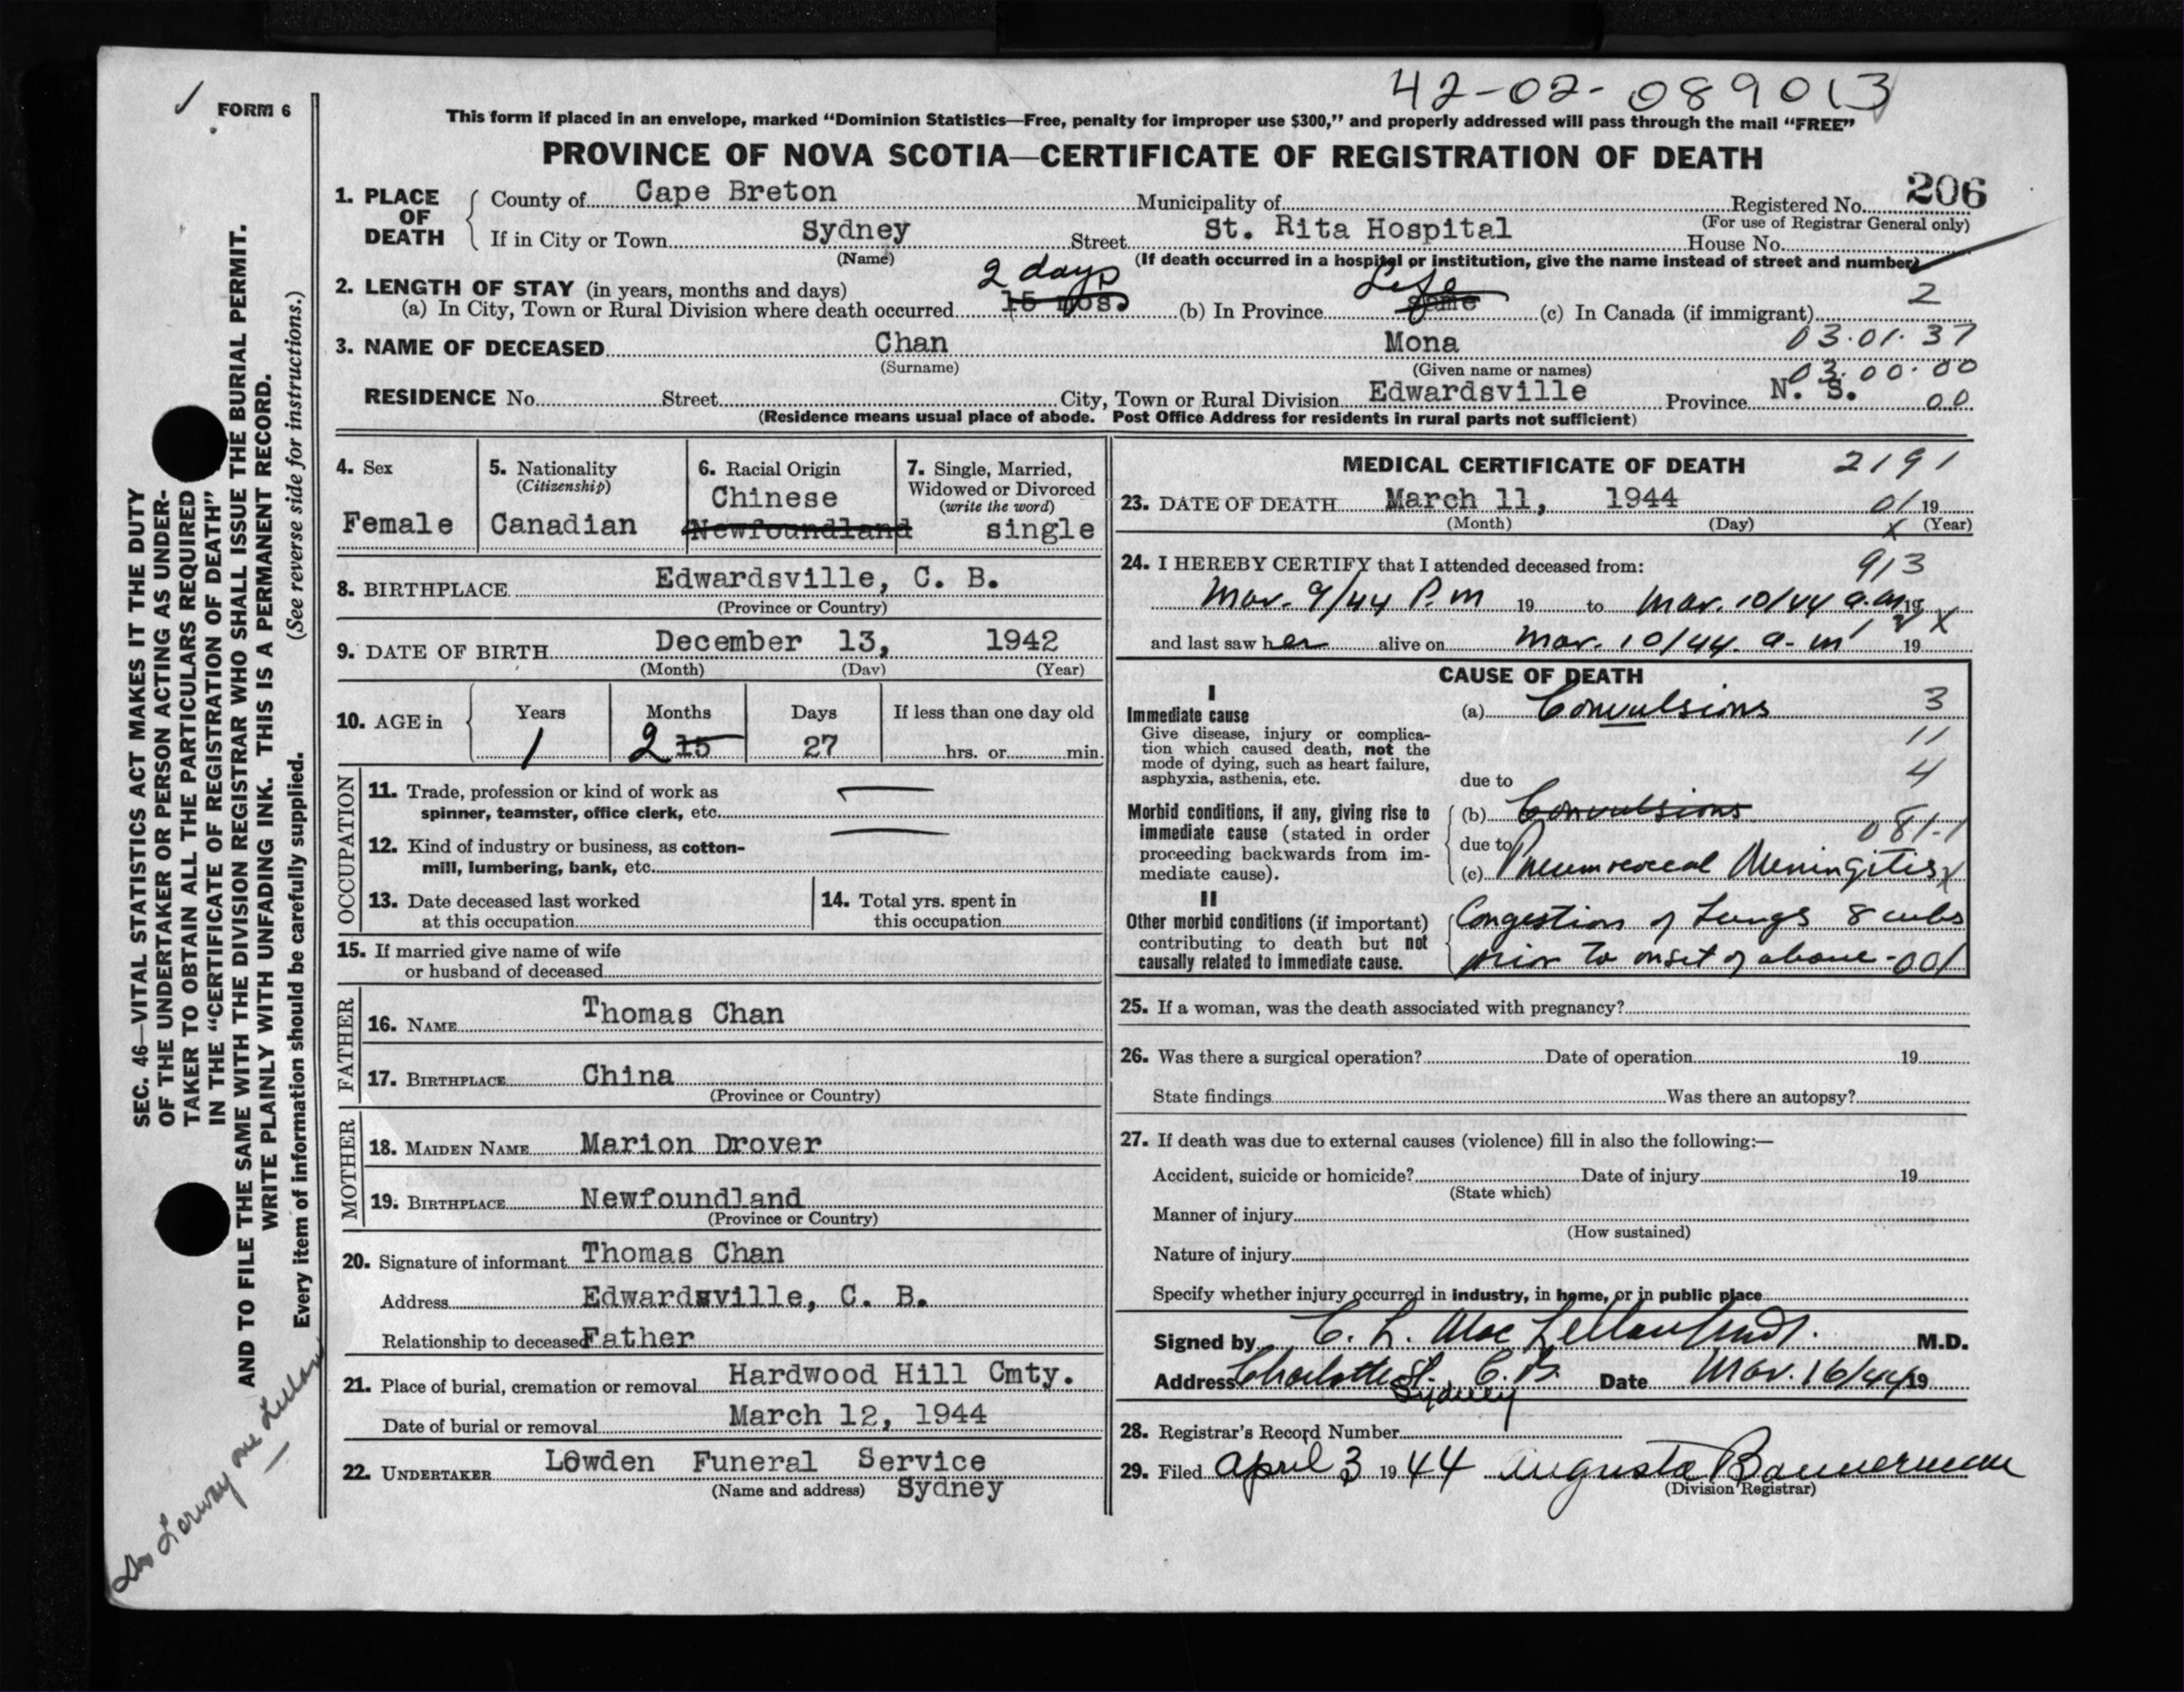 42-02-089013
FORM 6
This form if placed in an envelope, marked "Dominion Statistics—Free, penalty for improper use $300," and properly addressed will pass through the mail "FREE"
PROVINCE OF NOVA SCOTIA—CERTIFICATE OF REGISTRATION OF DEATH
206
1. PLACE OF DEATH County of Cape Breton Municipality of Registered No.
(For use of Registrar General only)
If in City or Town Sydney Street St. Rita Hospital House No.
(Name) (If death occurred in a hospital or institution, give the name instead of street and number)
2. LENGTH OF STAY (in years, months and days) 2 days Life 2
(a) In City, Town or Rural Division where death occurred 15 mos. (b) In Province same (c) In Canada (if immigrant)
3. NAME OF DECEASED Chan Mona 03.01.37
(Surname) (Given name or names) 03.00.00
RESIDENCE No. Street City, Town or Rural Division Edwardsville Province N. S. 00
(Residence means usual place of abode. Post Office Address for residents in rural parts not sufficient)
4. Sex Female
5. Nationality (Citizenship) Canadian
6. Racial Origin Chinese Newfoundland
7. Single, Married, Widowed or Divorced (write the word) single
8. BIRTHPLACE Edwardsville, C. B.
(Province or Country)
9. DATE OF BIRTH December 13, 1942
(Month) (Day) (Year)
10. AGE in Years Months Days If less than one day old
1 2 15 27 hrs. or min.
OCCUPATION
11. Trade, profession or kind of work as
spinner, teamster, office clerk, etc.
12. Kind of industry or business, as cotton-
mill, lumbering, bank, etc.
13. Date deceased last worked
at this occupation
14. Total yrs. spent in
this occupation
15. If married give name of wife
or husband of deceased
FATHER
16. NAME Thomas Chan
17. BIRTHPLACE China
(Province or Country)
MOTHER
18. MAIDEN NAME Marion Drover
19. BIRTHPLACE Newfoundland
(Province or Country)
20. Signature of informant Thomas Chan
Address Edwardsville, C. B.
Relationship to deceased Father
21. Place of burial, cremation or removal Hardwood Hill Cmty.
Date of burial or removal March 12, 1944
22. UNDERTAKER Lowden Funeral Service
(Name and address) Sydney
MEDICAL CERTIFICATE OF DEATH 2191
23. DATE OF DEATH March 11, 1944 01 19
(Month) (Day) X (Year)
24. I HEREBY CERTIFY that I attended deceased from: 913
Mar. 9/44 P.m 19 to Mar. 10/44 a.m 19
and last saw her alive on Mar. 10/44. a-m 19 X
CAUSE OF DEATH
I
Immediate cause (a) Convulsions 3
Give disease, injury or complica- 11
tion which caused death, not the
mode of dying, such as heart failure, 4
asphyxia, asthenia, etc. due to
Morbid conditions, if any, giving rise to (b) Convulsions
immediate cause (stated in order due to 081-1
proceeding backwards from im-
mediate cause). (c) Pneumococcal Meningitis X
II
Other morbid conditions (if important) Congestion of Lungs 8 wks
contributing to death but not
causally related to immediate cause. prior to onset of above - 001
25. If a woman, was the death associated with pregnancy?
26. Was there a surgical operation? Date of operation 19
State findings Was there an autopsy?
27. If death was due to external causes (violence) fill in also the following:—
Accident, suicide or homicide? Date of injury 19
(State which)
Manner of injury
(How sustained)
Nature of injury
Specify whether injury occurred in industry, in home, or in public place
Signed by C. L. MacLellan M.D.
Address Charlotte St. C.B. Date Mar. 16/44 19
Sydney
28. Registrar's Record Number
29. Filed April 3 1944 Augusta Bannerman
(Division Registrar)
SEC. 46—VITAL STATISTICS ACT MAKES IT THE DUTY
OF THE UNDERTAKER OR PERSON ACTING AS UNDER-
TAKER TO OBTAIN ALL THE PARTICULARS REQUIRED
IN THE "CERTIFICATE OF REGISTRATION OF DEATH"
AND TO FILE THE SAME WITH THE DIVISION REGISTRAR WHO SHALL ISSUE THE BURIAL PERMIT.
WRITE PLAINLY WITH UNFADING INK. THIS IS A PERMANENT RECORD.
Every item of information should be carefully supplied. (See reverse side for instructions.)